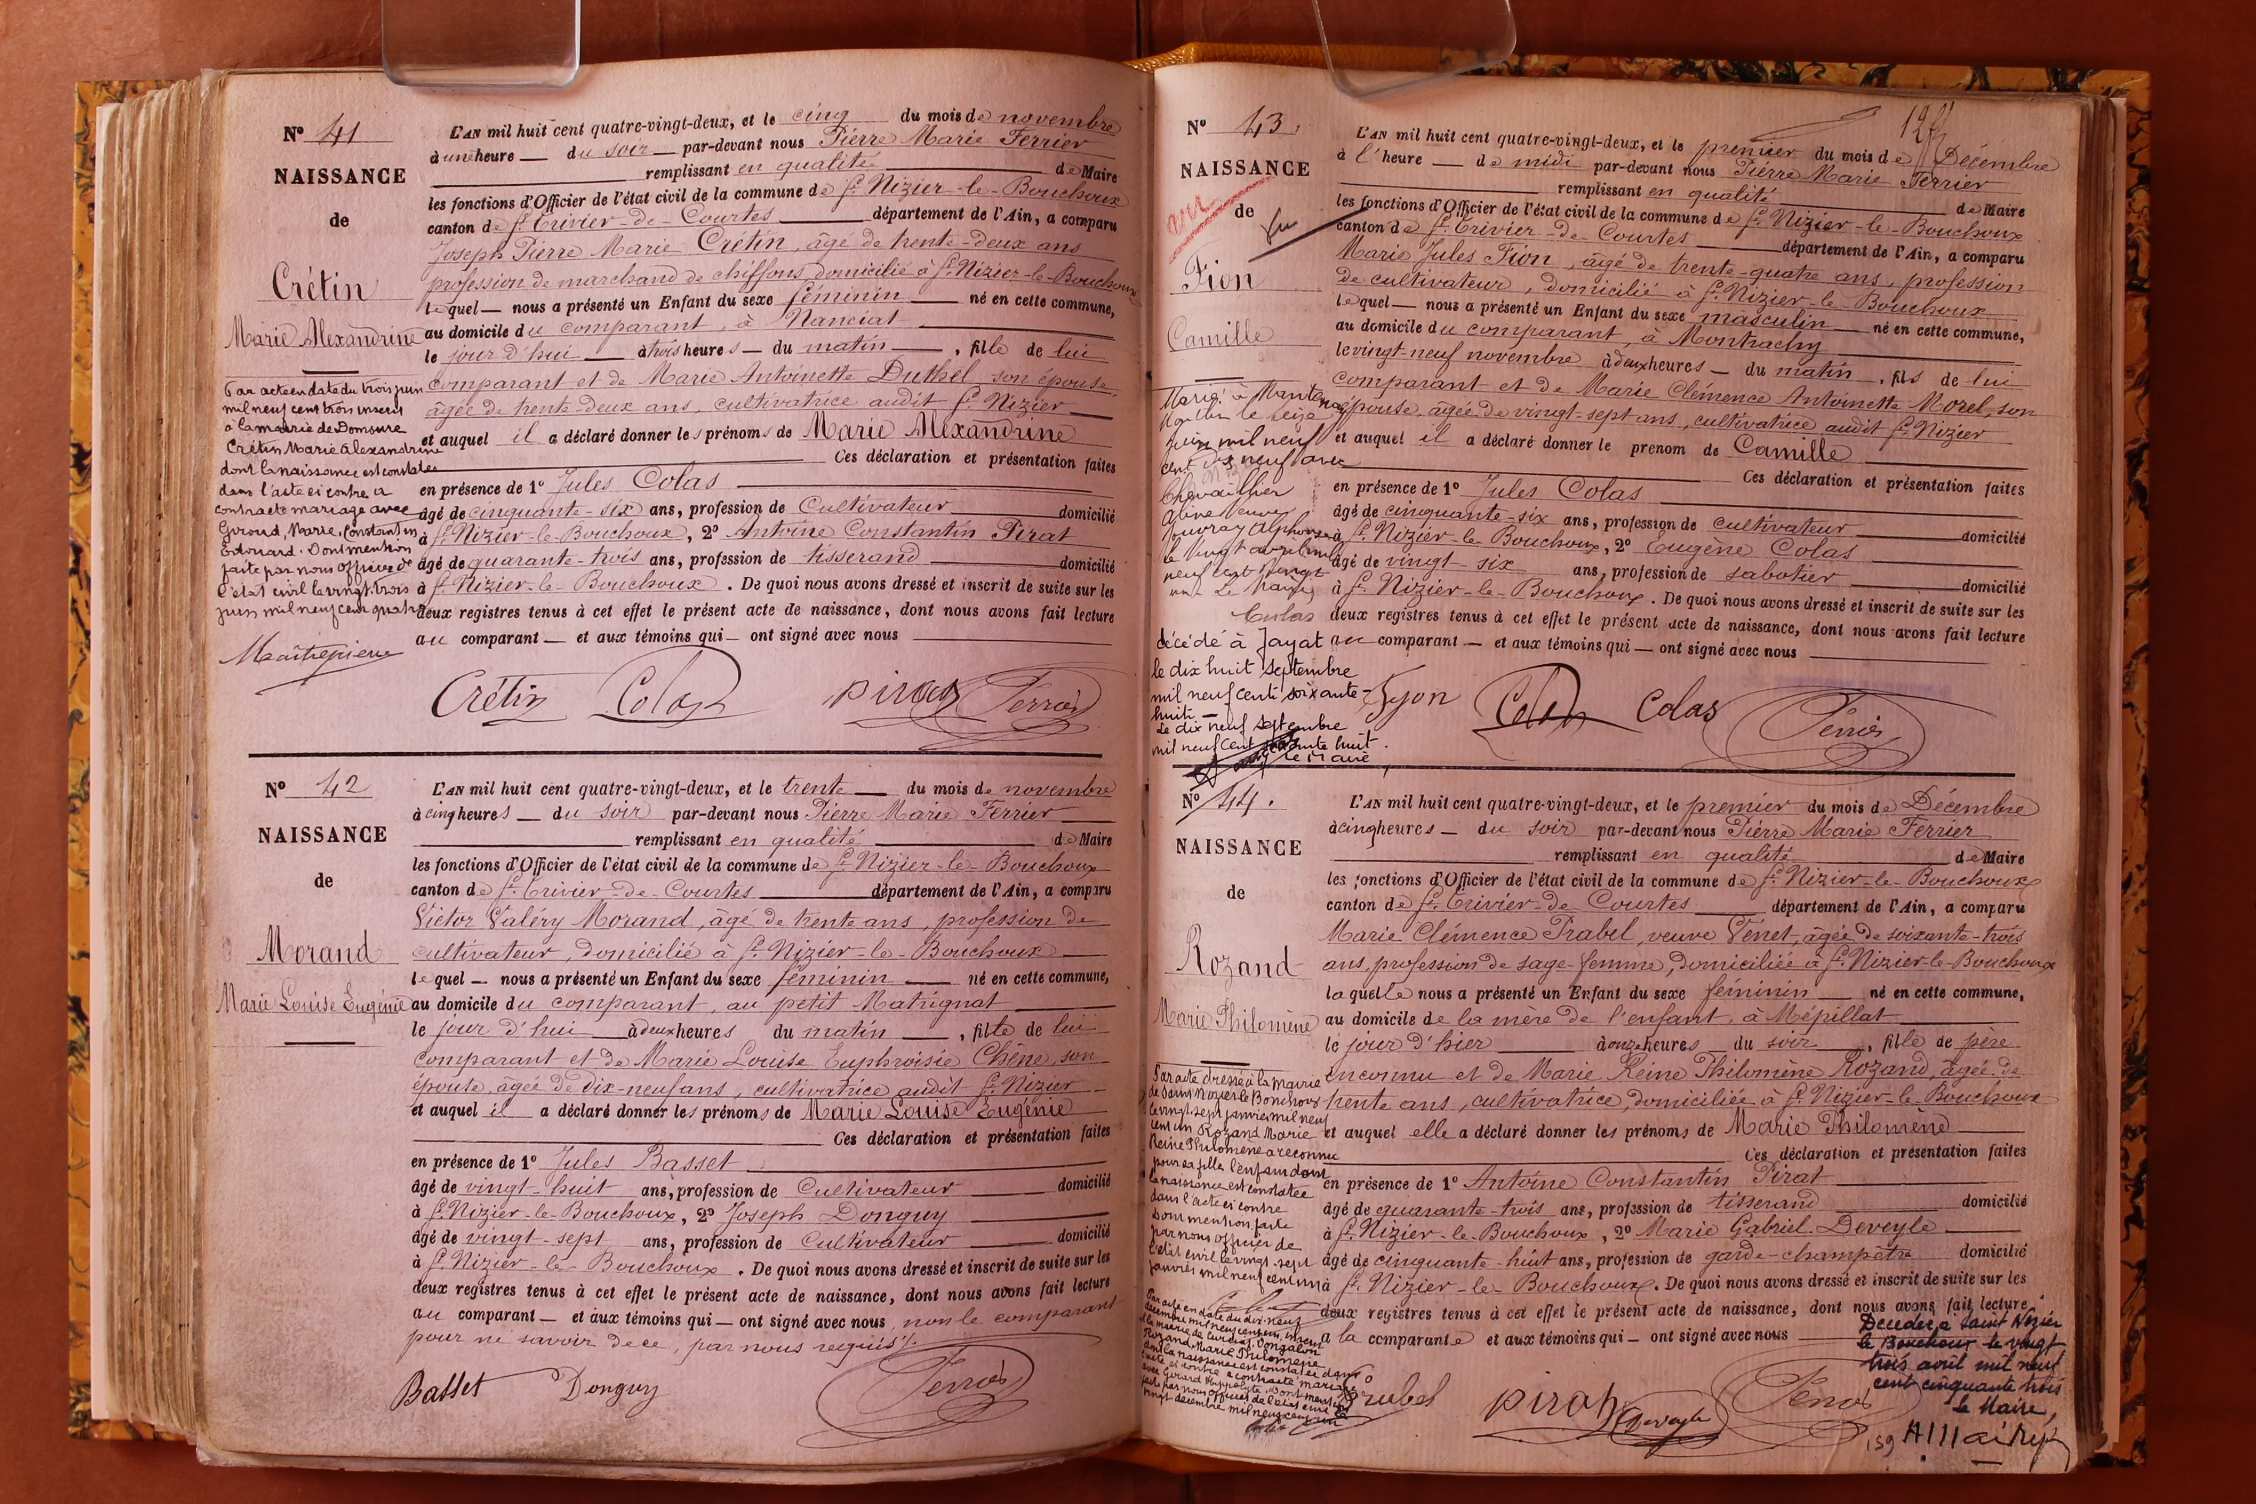 Nº 41
NAISSANCE
de
Crétin
Marie Alexandrine
Par acte en date du trois juin
mil neuf cent trois inscrit
à la mairie de Domsure
Crétin Marie Alexandrine
dont la naissance est constatée
dans l'acte ci contre a
contracté mariage avec
Giroud, Marie, Constantin
Edouard. Dont mention
faite par nous officier de
l'état civil le vingt trois
juin mil neuf cent quatre
L'AN mil huit cent quatre-vingt-deux, et le cinq du mois de novembre
à une heure du soir par-devant nous Pierre Marie Ferrier
remplissant en qualité de Maire
les fonctions d'Officier de l'état civil de la commune de St Nizier-le-Bouchoux
canton de St Trivier-de-Courtes département de l'Ain, a comparu
Joseph Pierre Marie Crétin, âgé de trente-deux ans
profession de marchand de chiffons domicilié à St Nizier-le-Bouchoux
lequel nous a présenté un Enfant du sexe féminin né en cette commune,
au domicile du comparant, à Nanciat
le jour d'hui à trois heures du matin, fille de lui
comparant et de Marie Antoinette Duthel son épouse,
âgée de trente-deux ans, cultivatrice audit St Nizier
et auquel il a déclaré donner les prénoms de Marie Alexandrine
Ces déclaration et présentation faites
en présence de 1º Jules Colas
âgé de cinquante-six ans, profession de Cultivateur domicilié
à St Nizier-le-Bouchoux, 2º Antoine Constantin Pirat
âgé de quarante-trois ans, profession de tisserand domicilié
à St Nizier-le-Bouchoux. De quoi nous avons dressé et inscrit de suite sur les
deux registres tenus à cet effet le présent acte de naissance, dont nous avons fait lecture
au comparant et aux témoins qui ont signé avec nous
Crétin Colas Pirat Ferrier
Nº 42
NAISSANCE
de
Morand
Marie Louise Eugénie
L'AN mil huit cent quatre-vingt-deux, et le trente du mois de novembre
à cinq heures du soir par-devant nous Pierre Marie Ferrier
remplissant en qualité de Maire
les fonctions d'Officier de l'état civil de la commune de St Nizier-le-Bouchoux
canton de St Trivier-de-Courtes département de l'Ain, a comparu
Victor Valéry Morand, âgé de trente ans, profession de
cultivateur, domicilié à St Nizier-le-Bouchoux
lequel nous a présenté un Enfant du sexe féminin né en cette commune,
au domicile du comparant, au petit Matrignat
le jour d'hui à deux heures du matin, fille de lui
comparant et de Marie Louise Euphroisie Chêne, son
épouse, âgée de dix-neuf ans, cultivatrice audit St Nizier
et auquel il a déclaré donner les prénoms de Marie Louise Eugénie
Ces déclaration et présentation faites
en présence de 1º Jules Basset
âgé de vingt-huit ans, profession de Cultivateur domicilié
à St Nizier-le-Bouchoux, 2º Joseph Donguy
âgé de vingt-sept ans, profession de Cultivateur domicilié
à St Nizier-le-Bouchoux. De quoi nous avons dressé et inscrit de suite sur les
deux registres tenus à cet effet le présent acte de naissance, dont nous avons fait lecture
au comparant et aux témoins qui ont signé avec nous, non le comparant
pour ne savoir de ce, par nous requis.
Basset Donguy Ferrier
Nº 43.
NAISSANCE
de
Fion
Camille
Marié à
le seize
juin mil neuf
cent dix neuf avec
Chevaillier
décédé à Jayat
le dix huit septembre
mil neuf cent soixante-
huit
Le dix neuf septembre
mil neuf cent soixante huit.
Le Maire,
L'AN mil huit cent quatre-vingt-deux, et le premier du mois de Décembre
à l'heure de midi par-devant nous Pierre Marie Ferrier
remplissant en qualité de Maire
les fonctions d'Officier de l'état civil de la commune de St Nizier-le-Bouchoux
canton de St Trivier-de-Courtes département de l'Ain, a comparu
Marie Jules Fion, âgé de trente-quatre ans, profession
de cultivateur, domicilié à St Nizier-le-Bouchoux
lequel nous a présenté un Enfant du sexe masculin né en cette commune,
au domicile du comparant, à Montrachy
le vingt-neuf novembre à deux heures du matin, fils de lui
comparant et de Marie Clémence Antoinette Morel, son
épouse, âgée de vingt-sept ans, cultivatrice audit St Nizier
et auquel il a déclaré donner le prenom de Camille
Ces déclaration et présentation faites
en présence de 1º Jules Colas
âgé de cinquante-six ans, profession de cultivateur domicilié
à St Nizier-le-Bouchoux, 2º Eugène Colas
âgé de vingt-six ans, profession de sabotier domicilié
à St Nizier-le-Bouchoux. De quoi nous avons dressé et inscrit de suite sur les
deux registres tenus à cet effet le présent acte de naissance, dont nous avons fait lecture
au comparant et aux témoins qui ont signé avec nous
fyon Colas Colas Ferrier
Nº 44.
NAISSANCE
de
Rozand
Marie Philomène
Par acte dressé à la mairie
de Saint Nizier le Bouchoux
le vingt sept janvier mil neuf
cent un Rozand Marie
Reine Philomène a reconnu
pour sa fille l'enfant dont
la naissance est constatée
dans l'acte ci contre
Dont mention faite
par nous officier de
l'état civil le vingt sept
janvier mil neuf cent un
Par acte en date du dix-neuf
décembre mil neuf cent un, inscrit
à la mairie de Curciat Dongalon
Rozand Marie Philomène
dont la naissance est constatée dans
l'acte ci contre a contracté mariage
avec Girard Hippolyte. Dont mention
faite par nous officier de l'état civil le
vingt décembre mil neuf cent un
L'AN mil huit cent quatre-vingt-deux, et le premier du mois de Décembre
à cinq heures du soir par-devant nous Pierre Marie Ferrier
remplissant en qualité de Maire
les fonctions d'Officier de l'état civil de la commune de St Nizier-le-Bouchoux
canton de St Trivier-de-Courtes département de l'Ain, a comparu
Marie Clémence Prabel, veuve Vénet, âgée de soixante-trois
ans, profession de sage-femme, domiciliée à St Nizier-le-Bouchoux
laquelle nous a présenté un Enfant du sexe féminin né en cette commune,
au domicile de la mère de l'enfant, à Mépillat
le jour d'hier à onze heures du soir, fille de père
inconnu et de Marie Reine Philomène Rozand, âgée de
trente ans, cultivatrice, domiciliée à St Nizier-le-Bouchoux
et auquel elle a déclaré donner les prénoms de Marie Philomène
Ces déclaration et présentation faites
en présence de 1º Antoine Constantin Pirat
âgé de quarante-trois ans, profession de tisserand domicilié
à St Nizier-le-Bouchoux, 2º Marie Gabriel Deveyle
âgé de cinquante-huit ans, profession de garde-champêtre domicilié
à St Nizier-le-Bouchoux. De quoi nous avons dressé et inscrit de suite sur les
deux registres tenus à cet effet le présent acte de naissance, dont nous avons fait lecture
a la comparante et aux témoins qui ont signé avec nous
Decedée à Saint Nizier
le Bouchoux le vingt
trois avril mil neuf
cent cinquante trois
le Maire,
Prabel Pirat Deveyle Ferrier
159